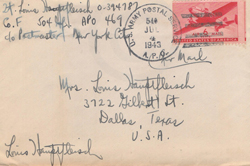 Lt. Louis Hauptfleisch O-394787
Co. F 504 Inf. APO 469
c/o Postmaster New York City
U.S. ARMY POSTAL SERVICE
1943
A.P.O.
Air Mail
UNITED STATES OF AMERICA
Mrs. Louis Hauptfleisch
3722 Gilbert St.
Dallas, Texas
U.S.A.
Louis Hauptfleisch